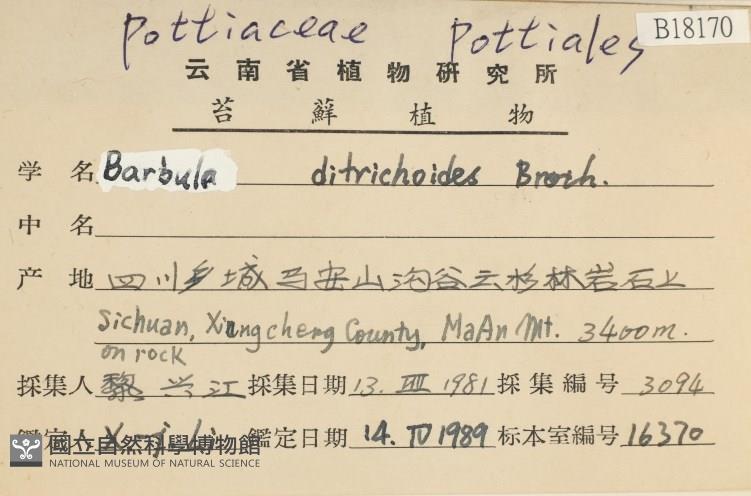 Pottiaceae Pottiales B18170
云南省植物研究所
苔蘚植物
学名 Barbula ditrichoides Broth.
中名
产地 四川乡城马安山沟谷云杉林岩石上
Sichuan, Xiangcheng County, MaAn Mt. 3400m.
on rock
採集人 黎兴江 採集日期 13. VIII 1981 採集編号 3094
鑑定人 X-j Li 鑑定日期 14. IV 1989 标本室編号 16370
國立自然科學博物館
NATIONAL MUSEUM OF NATURAL SCIENCE